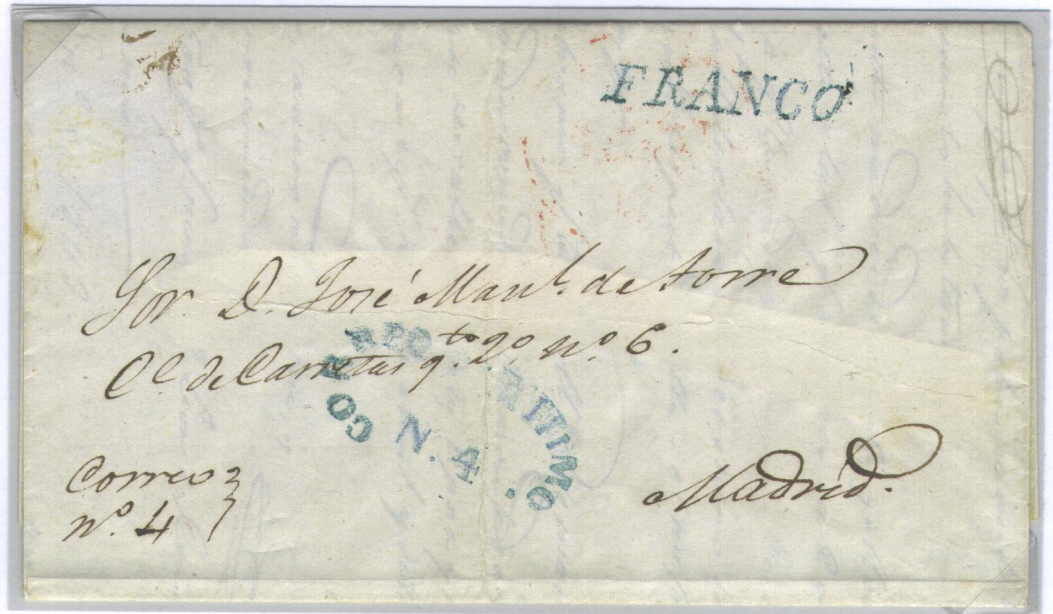 FRANCO
Sor. D. José Manl. de torre
Cl. de Carretas qto. 2º nº 6.
CORREO MARITIMO.
N. 4
Correo
nº 4
Madrid.